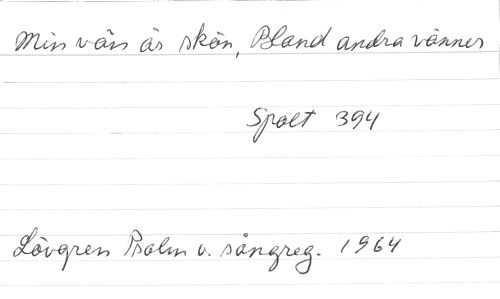 Min vän är skön, Bland andra vänner
Spalt 394
Lövgren Psalm o. sångreg. 1964